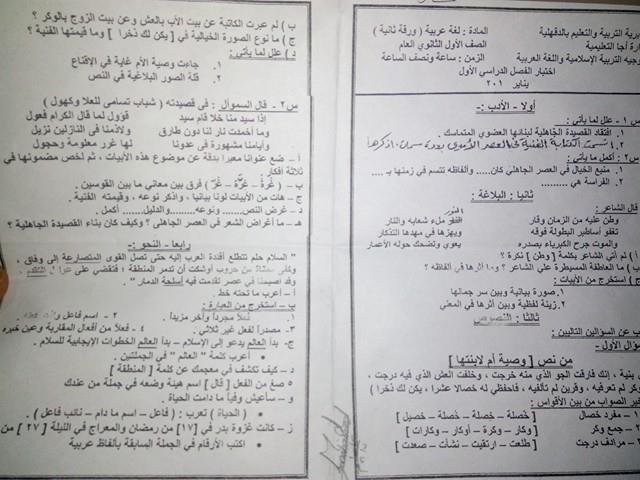 مديرية التربية والتعليم بالدقهلية
المادة : لغة عربية ( ورقة ثانية )
إدارة أجا التعليمية
الصف الأول الثانوي العام
توجيه التربية الإسلامية واللغة العربية
الزمن : ساعة ونصف الساعة
اختبار الفصل الدراسي الأول
يناير ٢٠١
أولا - الأدب :-
س١ - علل لما يأتي :
١. افتقاد القصيدة الجاهلية لبنائها العضوي المتماسك .
٢. اتسمت الكتابة الفنية في العصر الأموي بعدة سمات اذكرها
س٢: أكمل ما يأتي :
١. منبع الخيال في العصر الجاهلي كان..... وألفاظه تتسم في زمنها بـ .....
٢. الفراسة هي .........
ثانيا : البلاغة :
قال الشاعر :
وطن عليه من الزمان وقار النور ملء شعابه والنار
تغفو أساطير البطولة فوقه ويهزها في مهدها التذكار
والموت جرح الكبرياء بصدره يعوي وتضحك حوله الأعمار
أ ) لم أتي الشاعر بكلمة [ وطن ] نكرة ؟
ب ) ما العاطفة المسيطرة علي الشاعر ؟ وما أثرها في ألفاظه ؟
١. صورة بيانية وبين سر جمالها
٢. زينة لفظية وبين أثرها في المعني
ثالثا : النصوص
أجب عن السؤالين التاليين :
السؤال الأول -
من نص [ وصية أم لابنتها ]
أي بنية ، إنك فارقت الجو الذي منه خرجت ، وخلفت العش الذي فيه درجت ،
وكر لم تعرفيه ، وقرين لم تألفيه ، فاحفظي له خصالا عشرا ، يكن لك ذخرا )
تخير الصواب من بين الأقواس :
١ - مفرد خصال [ خَصلة - خُصلة - خصيل ]
٢ - جمع وكر [ وكار - وكرة - أوكار - وكارات ]
٣ - مرادف درجت [ طلعت - ارتقيت - نشأت - صعدت ]
ب ) لم عبرت الكاتبة عن بيت الأب بالعش وعن بيت الزوج بالوكر ؟
ج ) ما نوع الصورة الخيالية في [ يكن لك ذخرا ] وما قيمتها الفنية ؟
د ) علل لما يأتي :
١. جاءت وصية الأم غاية في الإقناع
٢. قلة الصور البلاغية في النص
س٢ - قال السموأل : في قصيدته ( شباب تسامى للعلا وكهول )
إذا سيد منا خلا قام سيد قؤول لما قال الكرام فعول
وما أخمدت نار لنا دون طارق ولاذمنا في النازلين نزيل
وأيامنا مشهورة في عدونا لها غرر معلومة وحجول
أ - ضع عنوانا معبرا بدقة عن موضوع هذه الأبيات ، ثم لخص مضمونها في
ثلاثة أفكار.
ب - ( غُرة - غِرَّة - غَرَّ ) فرق بين معاني ما بين القوسين .
ج - هات من الأبيات لونا بيانيا ، واذكر نوعه ، وقيمته الفنية .
د - غرض النص....... ونوعه........والدليل....... أكمل .
هـ - ما أغراض الشعر في العصر الجاهلي ؟ وكيف كان بناء القصيدة الجاهلية ؟
رابعا - النحو :-
" السلام حلم تتطلع أفئدة العرب إليه حتى تصل القوى المتصارعة إلى وفاق ،
من حروب أوشكت أن تدمر المنطقة ؛ فتقضي على
وقد أصبحنا في عصر تقدمت فيه أسلحة الدمار " .
أ - أعرب ما تحته خط .
ب - استخرج من العبارة :
١. فعلا مجردا وآخر مزيدا . ٢ - اسم فاعل
٣. مصدرا لفعل غير ثلاثي . ٤ - فعلا من أفعال المقاربة وعين خبره
ج- بدأ العالم يدعو إلى الإسلام – بدأ العالم الخطوات الإيجابية للسلام .
• أعرب كلمة " العالم " في الجملتين .
د- كيف تكشف في معجمك عن كلمة [ المنطقة ]
٥ صغ من الفعل [ قال ] اسم هيئة وضعه في جملة من عندك
و – سأعيش وفيا ما دامت الحياة .
• ( الحياة ) تعرب : ( فاعل – اسم ما دام – نائب فاعل ) .
ز – كانت غزوة بدر في [١٧] من رمضان والمعراج في الليلة [ ٢٧ ] من
• اكتب الأرقام في الجملة السابقة بألفاظ عربية